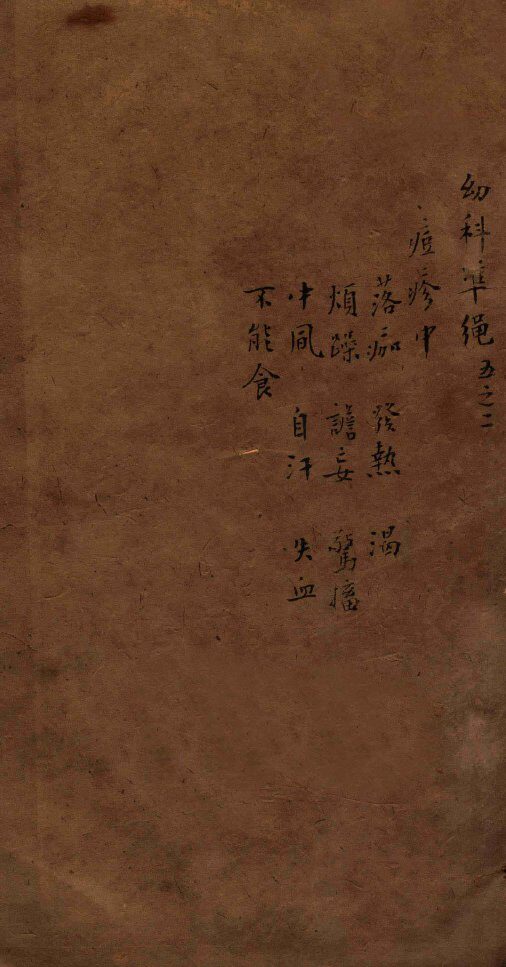 幼科準绳 五之二
痘疹中
落痂 發熱 渴
煩躁 譫妄 驚搐
中風 自汗 失血
不能食